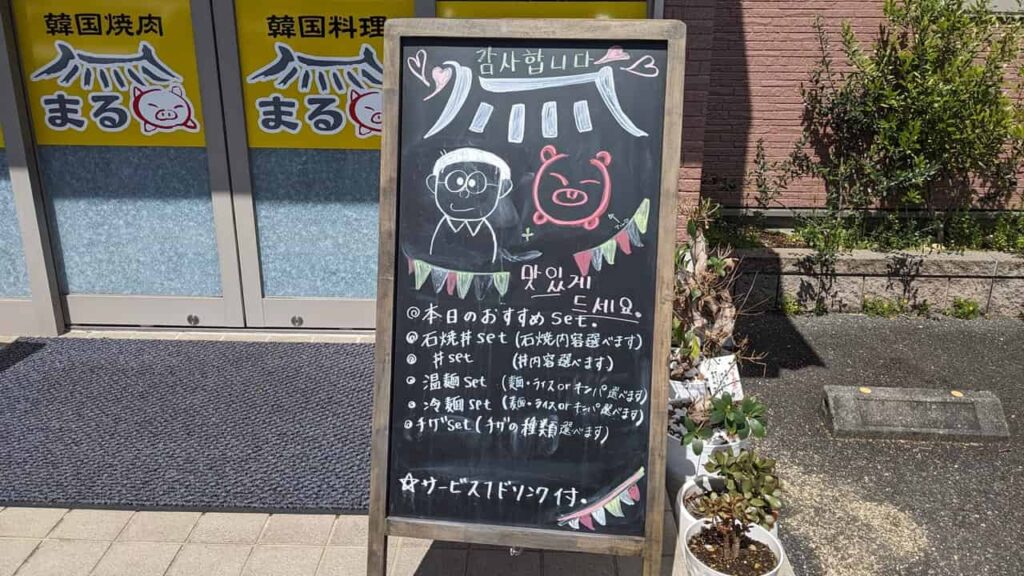 韓国焼肉
まる
韓国料理
まる
감사합니다
맛있게
드세요.
◎本日のおすすめset.
◎石焼丼set (石焼内容選べます)
◎丼set (丼内容選べます)
◎温麺set (麺・ライスorキンパ選べます)
◎冷麺set (麺・ライスorキンパ選べます)
◎チゲset (チゲの種類選べます)
☆サービス1ドリンク付.